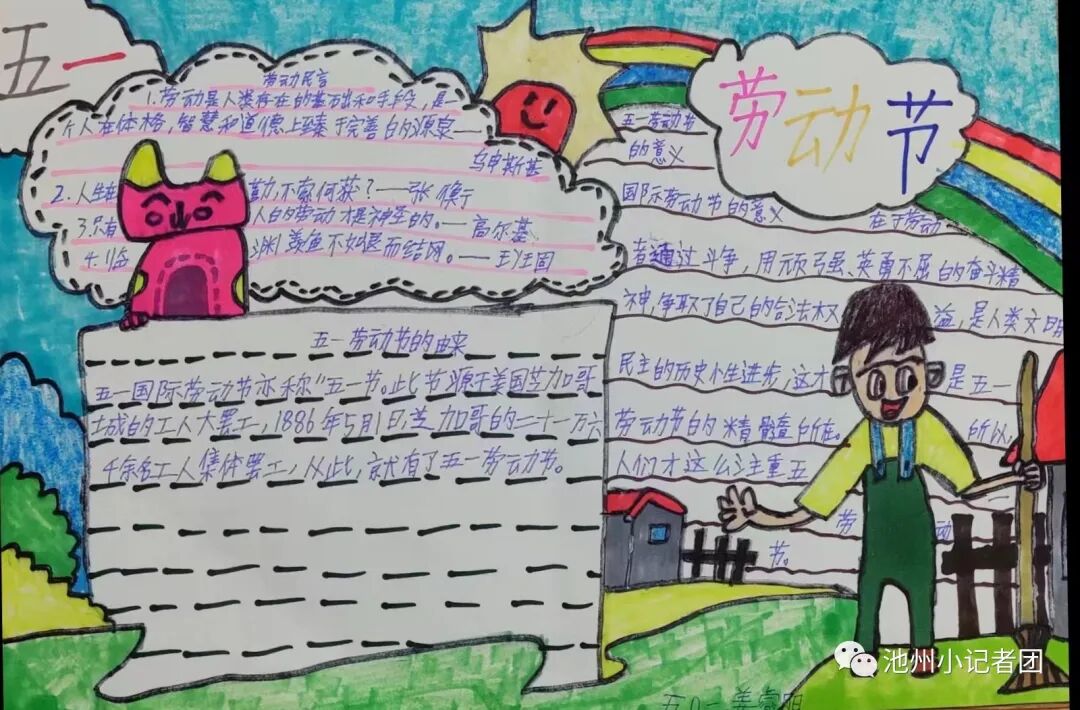 五一
劳动节
劳动名言
1.劳动是人类存在的基础和手段，是一
个人在体格，智慧和道德上臻于完善的源泉——
乌申斯基
2.人生在勤，不索何获？——张衡
3.只有人的劳动才是神圣的。——高尔基
4.临渊羡鱼不如退而结网。——班固
五一劳动节的由来
五一国际劳动节亦称“五一节。此节源于美国芝加哥
城的工人大罢工，1886年5月1日，芝加哥的二十一万六
千余名工人集体罢工，从此，就有了五一劳动节。
五一劳动节
的意义
国际劳动节的意义 在于劳动
者通过斗争，用顽强、英勇不屈的奋斗精
神，争取了自己的合法权益，是人类文明
民主的历史性进步，这才是五一
劳动节的精髓所在。所以，
人们才这么注重五
劳动
节。
池州小记者团